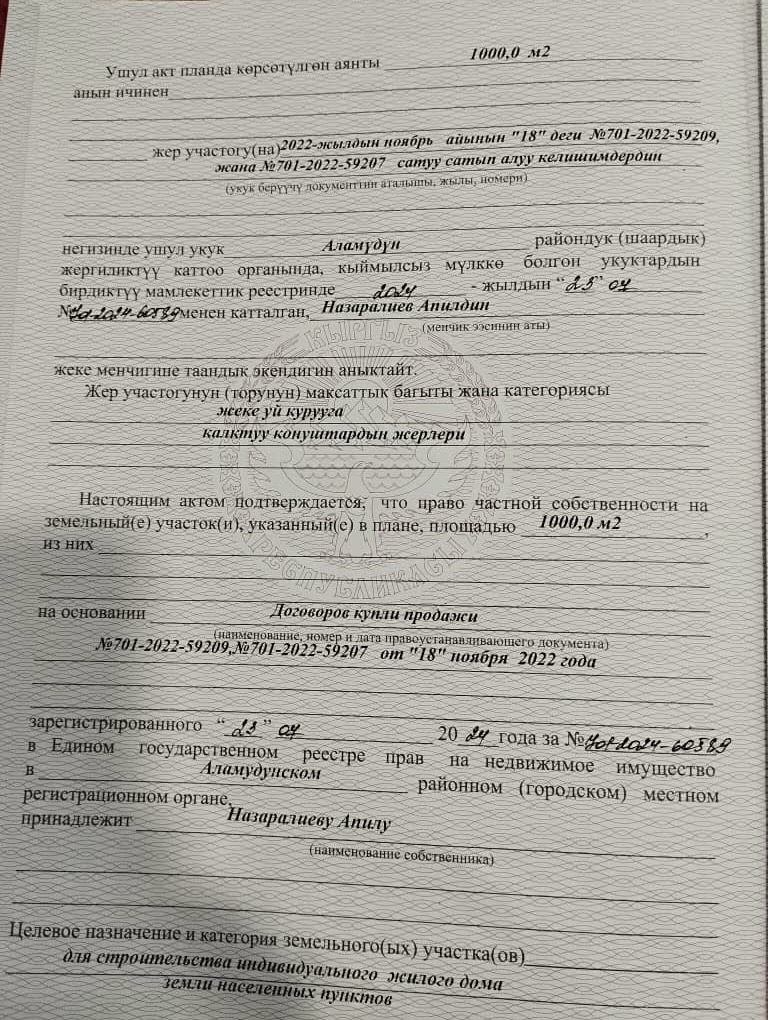 Ушул акт планда көрсөтүлгөн аянты 1000,0 м2
анын ичинен
жер участогу(на) 2022-жылдын ноябрь айынын "18" деги №701-2022-59209,
жана №701-2022-59207 сатуу сатып алуу келишимдердин
(укук берүүчү документтин аталышы, жылы, номери)
негизинде ушул укук Аламүдүн райондук (шаардык)
жергиликтүү каттоо органында, кыймылсыз мүлккө болгон укуктардын
бирдиктүү мамлекеттик реестринде 2024 - жылдын “23” 04
№701-2024-60589 менен катталган, Назаралиев Апилдин
(менчик ээсинин аты)
жеке менчигине таандык экендигин аныктайт.
Жер участогунун (торунун) максаттык багыты жана категориясы
жеке үй курууга
калктуу конуштардын жерлери
КЫРГЫЗ РЕСПУБЛИКАСЫ
Настоящим актом подтверждается, что право частной собственности на
земельный(е) участок(и), указанный(е) в плане, площадью 1000,0 м2,
из них
на основании Договоров купли продажи
(наименование, номер и дата правоустанавливающего документа)
№701-2022-59209,№701-2022-59207 от "18" ноября 2022 года
зарегистрированного “23” 04 2024 года за №701-2024-60589
в Едином государственном реестре прав на недвижимое имущество
в Аламудунском районном (городском) местном
регистрационном органе,
принадлежит Назаралиеву Апилу
(наименование собственника)
Целевое назначение и категория земельного(ых) участка(ов)
для строительства индивидуального жилого дома
земли населенных пунктов